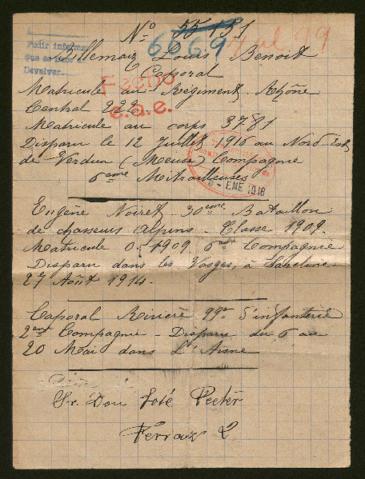 Nº 55151
6669
Pedir informes
que se sean
Devolver
Billemaiz Louis Benoit
Caporal
Fecho
e.a.e.
Matricule au Régiment, Rhône
Central 222
Matricule au corps 3781
Disparu le 12 Juillet 1916 au Nord Est
de Verdun (Meuse) Compagnie
6ème Mitrailleuses
ENE 1918
Eugène Noiret - 30ème Bataillon
de chasseurs alpins - Classe 1909.
Matricule 0.1909 6ème Compagnie
Disparu dans les Vosges, à
27 Août 1914.
Caporal Rivière 99e d'infanterie
2ème Compagnie - Disparu du 6 au
20 Mai dans l'Aisne
Sr. Don José
Ferraz 2